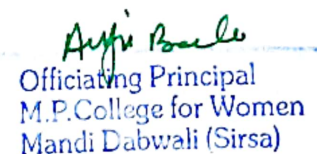 Officiating Principal
M.P.College for Women
Mandi Dabwali (Sirsa)